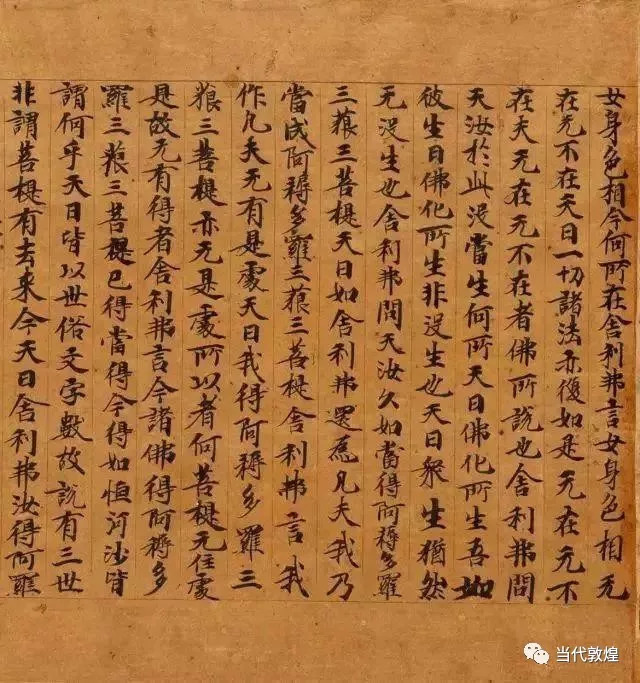 女身色相今何所在舍利弗言女身色相无
在无不在天曰一切諸法亦復如是无在无不
在夫无在无不在者佛所說也舍利弗問
天汝於此沒當生何所天曰佛化所生吾如
彼生曰佛化所生非沒生也天曰眾生猶然
无沒生也舍利弗問天汝久如當得阿耨多羅
三藐三菩提天曰如舍利弗還為凡夫我乃
當成阿耨多羅三藐三菩提舍利弗言我
作凡夫无有是處天曰我得阿耨多羅三
藐三菩提亦无是處所以者何菩提无住處
是故无有得者舍利弗言今諸佛得阿耨多
羅三藐三菩提已得當得今得如恒河沙皆
謂何乎天曰皆以世俗文字數故說有三世
非謂菩提有去來今天曰舍利弗汝得阿羅
当代敦煌